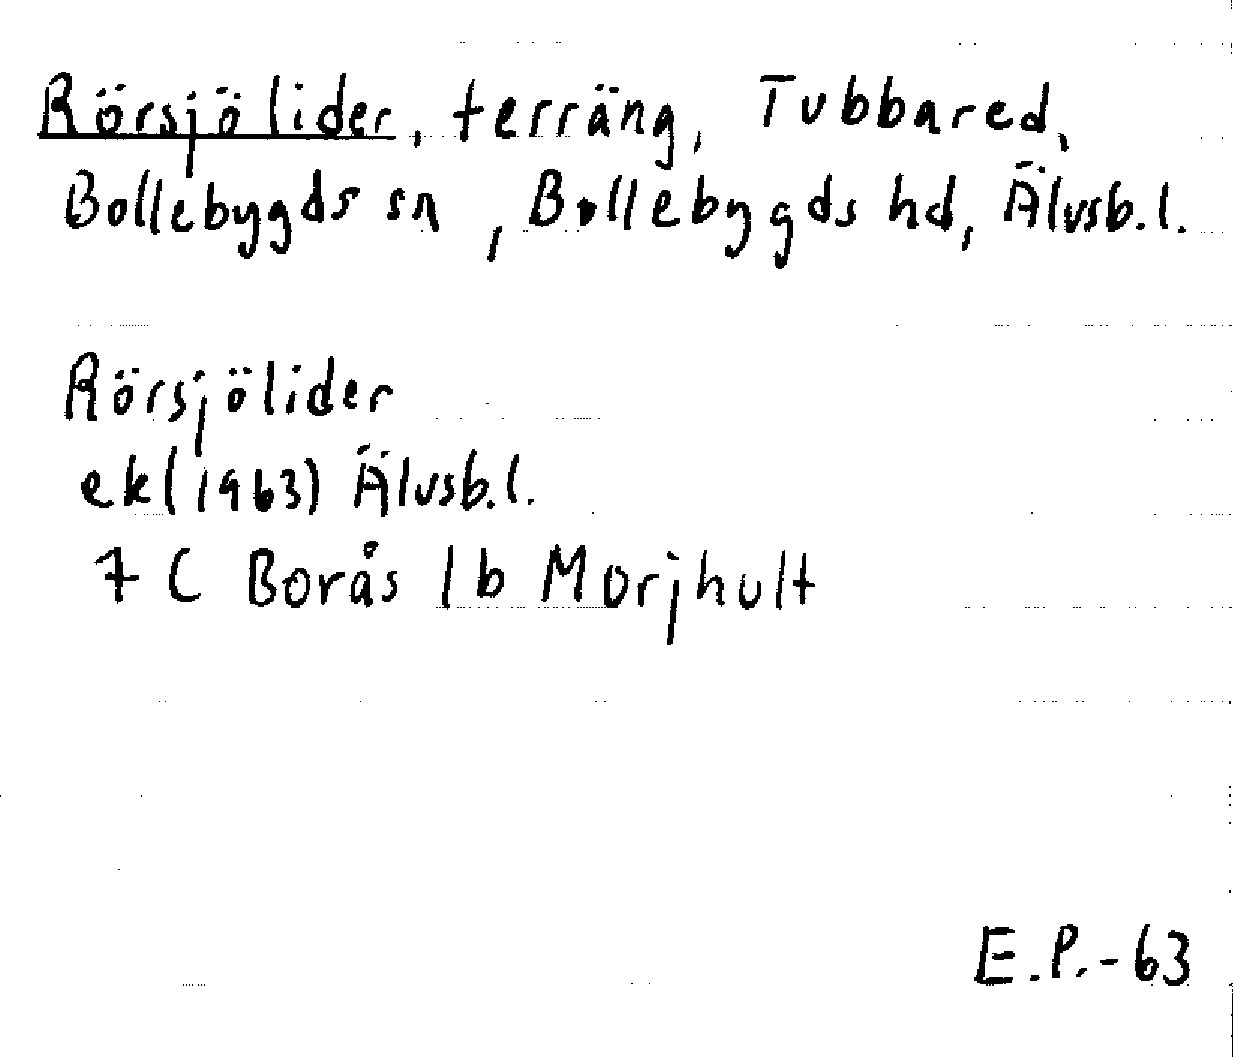 Rörsjölider, terräng, Tubbared,
Bollebygds sn, Bollebygds hd, Älvsb.l.
Rörsjölider
ek(1963) Älvsb.l.
7 C Borås 1b Morjhult
E.P.-63